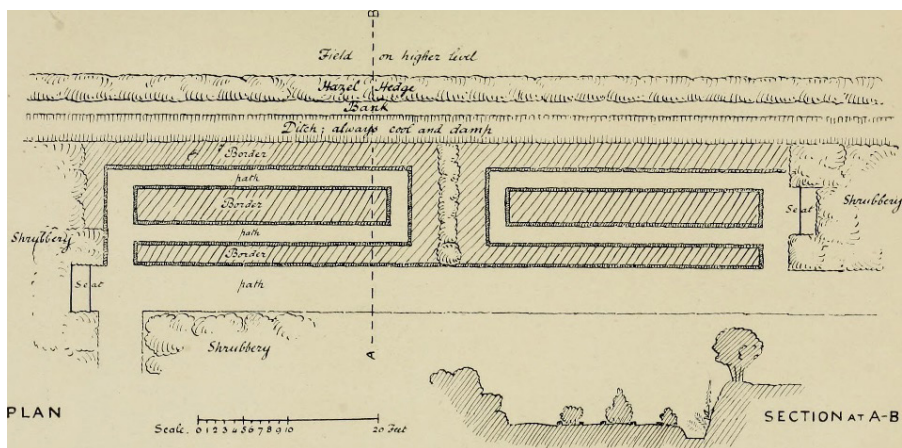 B
Field on higher level
Hazel Hedge
Bank
Ditch; always cool and damp
Border
path
Border
path
Border
path
Shrubbery
Seat
Seat
Shrubbery
Shrubbery
A
PLAN
Scale. 0 1 2 3 4 5 6 7 8 9 10 20 Feet
SECTION AT A-B